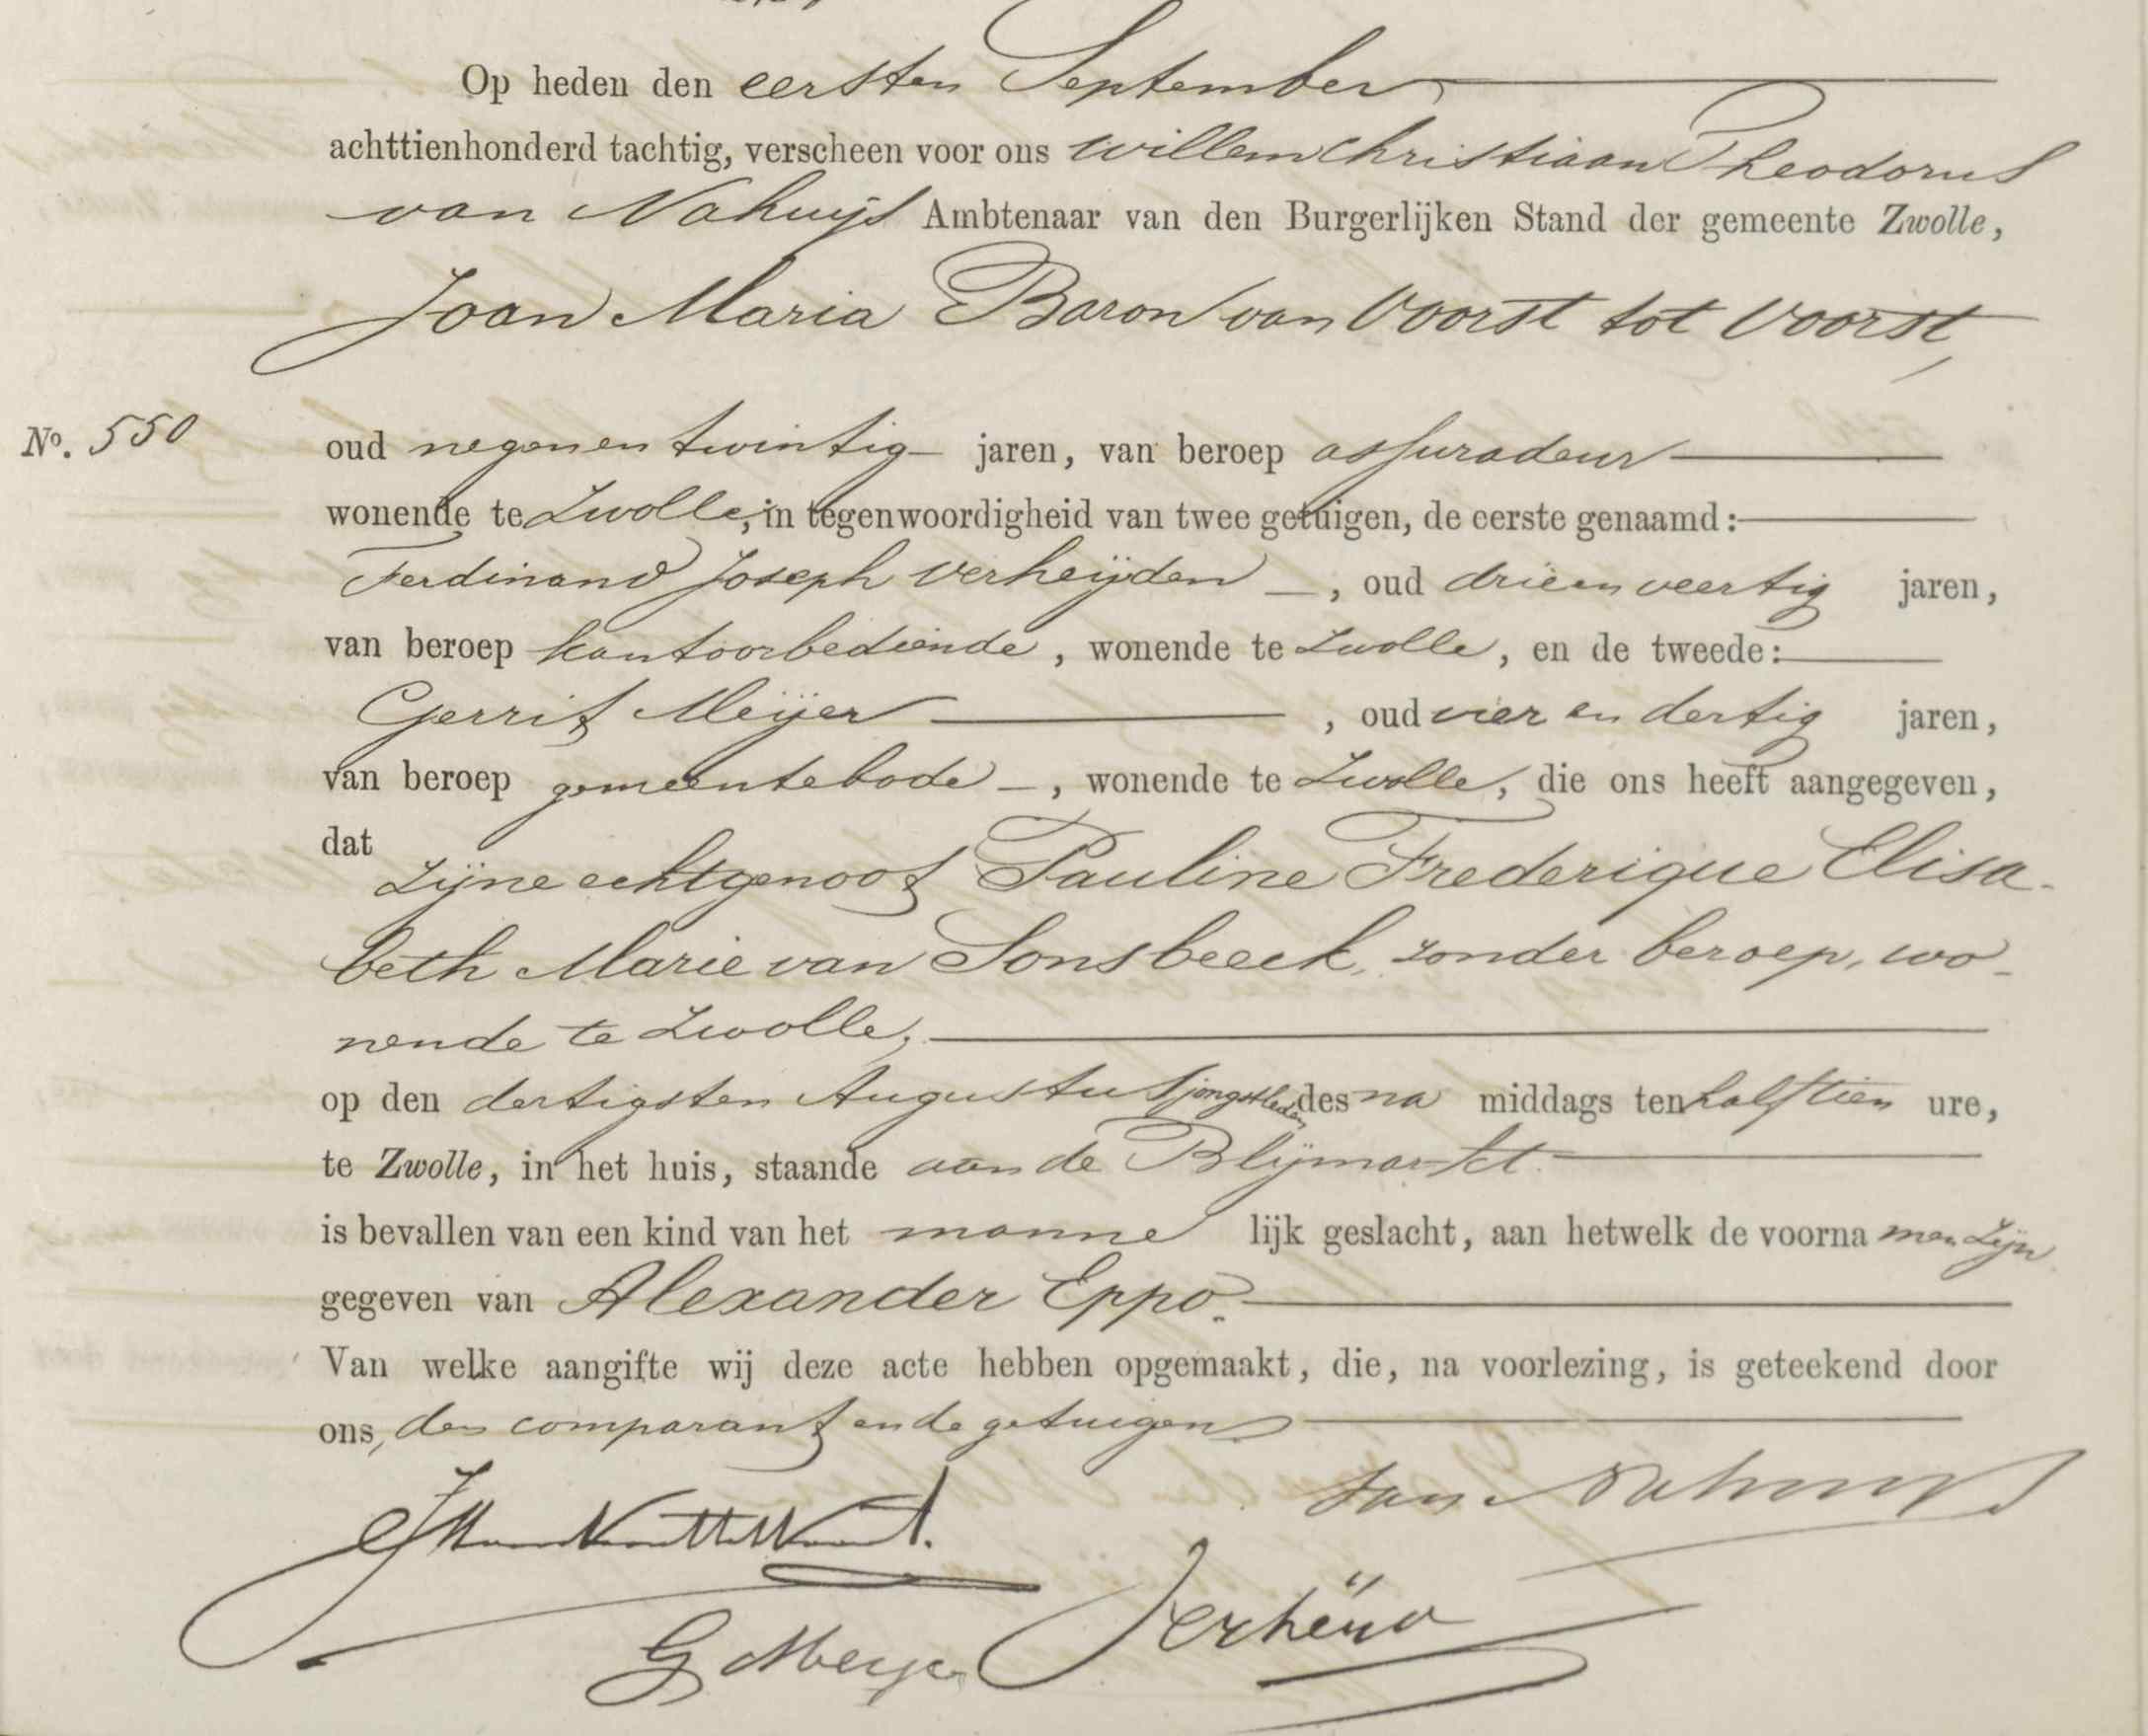 Op heden den eersten September
achttienhonderd tachtig, verscheen voor ons Willem Christiaan Theodorus
van Nahuijs Ambtenaar van den Burgerlijken Stand der gemeente Zwolle,
Joan Maria Baron van Voorst tot Voorst,
No. 550
oud negen en twintig jaren, van beroep assuradeur
wonende te Zwolle, in tegenwoordigheid van twee getuigen, de eerste genaamd:
Ferdinand Joseph Verheijden, oud drie en veertig jaren,
van beroep kantoorbediende, wonende te Zwolle, en de tweede:
Gerrit Meijer, oud vier en dertig jaren,
van beroep gemeentebode, wonende te Zwolle, die ons heeft aangegeven,
dat
zijne echtgenoot Pauline Frederique Elisa-
beth Marie van Sonsbeeck, zonder beroep, wo-
nende te Zwolle,
op den dertigsten Augustus jongstleden des na middags ten half tien ure,
te Zwolle, in het huis, staande aan de Blijmarkt.
is bevallen van een kind van het manne lijk geslacht, aan hetwelk de voorna men zijn
gegeven van Alexander Eppo.
Van welke aangifte wij deze acte hebben opgemaakt, die, na voorlezing, is geteekend door
ons, den comparant en de getuigen
van Nahuijs
G Meijer